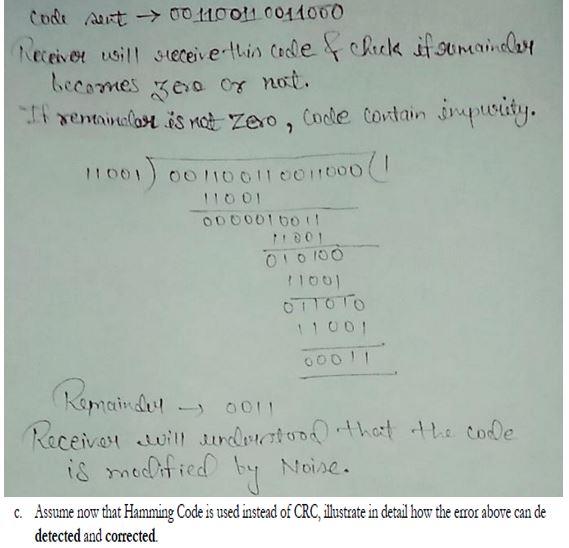 Code sent → 0011001100110​00
Receiver will receive this code & check if remainder
becomes zero or not.
If remainder is not zero, Code contain impurity.
11001) 001100110011000 (1
11001
0000010011
11001
010100
11001
011010
11001
00011
Remainder → 0011
Receiver will understood that the code
is modified by Noise.
c. Assume now that Hamming Code is used instead of CRC, illustrate in detail how the error above can de
detected and corrected.